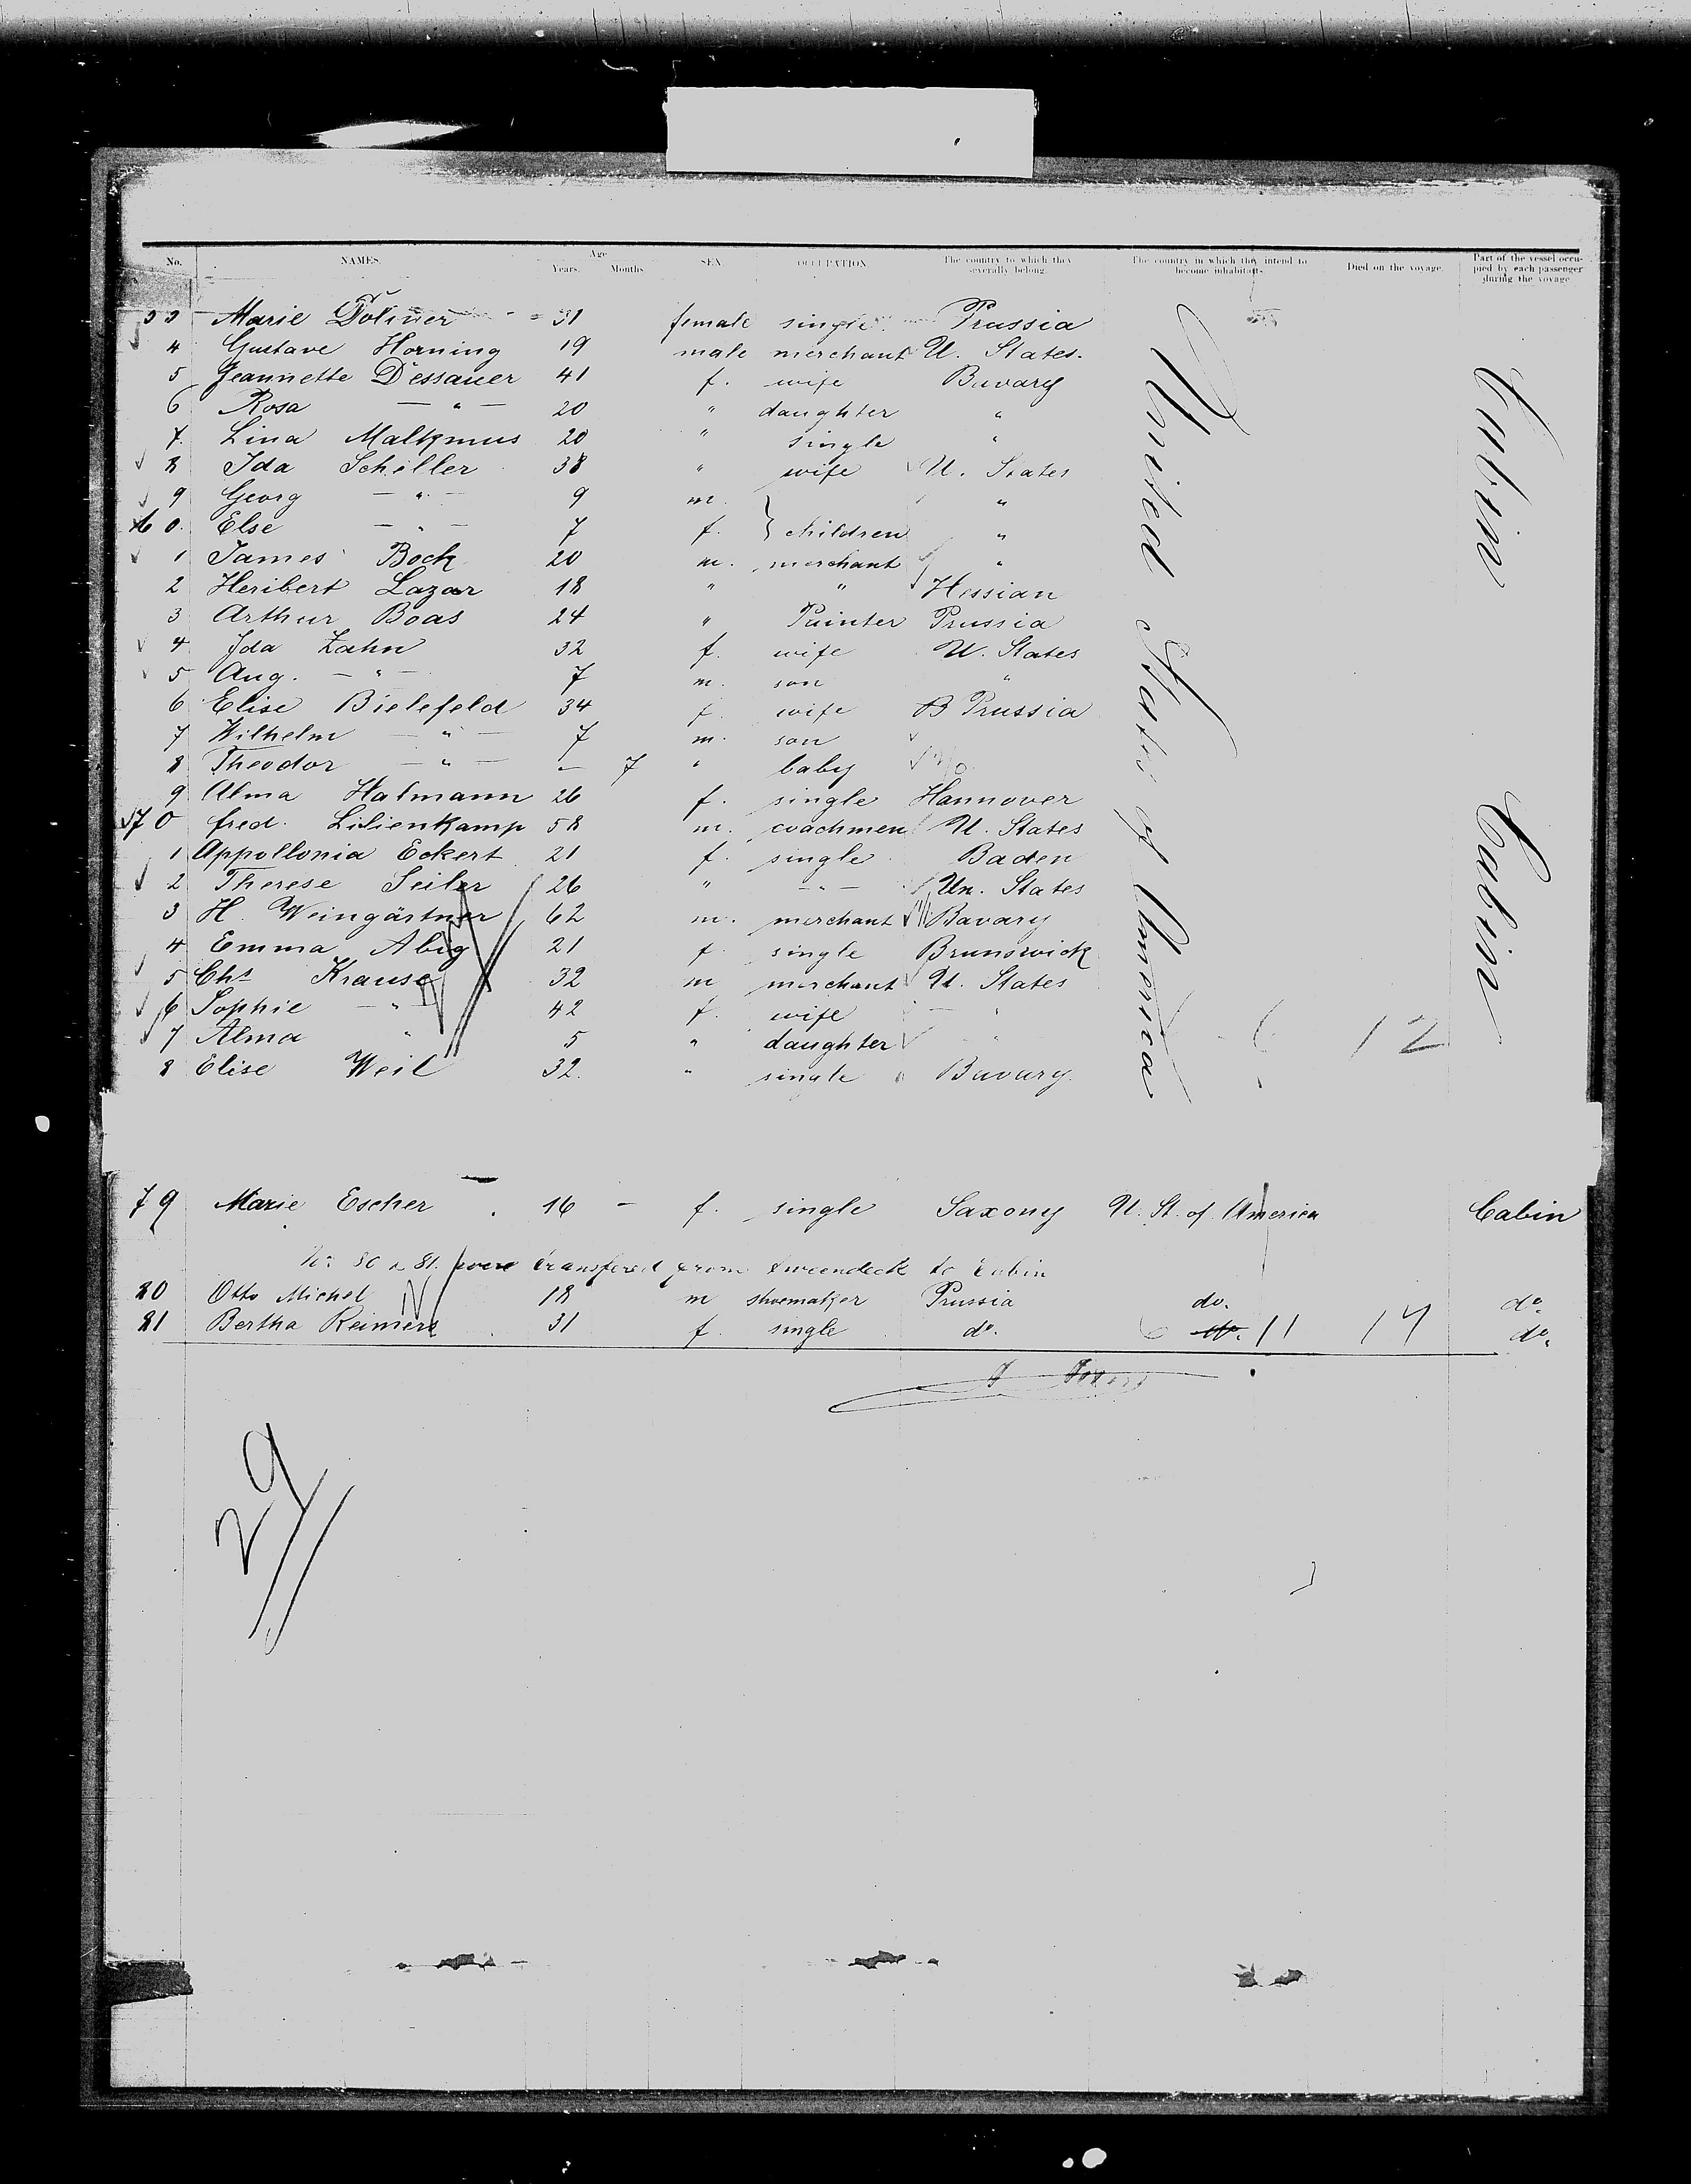 No. NAMES. Age Years. Months SEX. OCCUPATION. The country to which they severally belong. The country in which they intend to become inhabitants. Died on the voyage. Part of the vessel occupied by each passenger during the voyage
Marie 31 female single Prussia
4 Gustave Horning 19 male merchant U. States.
5 Jeannette Dessauer 41 f. wife Bavary
6 Rosa — " — 20 " daughter "
7. Lina Malkmus 20 " single "
8 Ida Schiller 38 " wife U. States
9 Georg — " — 9 m. "
60. Else — " — 7 f. } children "
1 James Bock 20 m. merchant "
2 Heribert Lazar 18 " " Hessian
3 Arthur Boas 24 " Painter Prussia
4 Ida Zahn 32 f. wife U. States
5 Aug. — " — 7 m. son "
6 Elise Bielefeld 34 f. wife Prussia
7 Wilhelm — " — 7 m. son
8 Theodor — " — — 7 " baby
9 Alma Halmann 26 f. single Hannover
70 fred. Lilienkamp 58 m. coachmen U. States
1 Appollonia Eckert 21 f. single Baden
2 Therese Seiler 26 " — " — Un. States
3 H. Weingärtner 62 m. merchant Bavary
4 Emma Abig 21 f. single Brunswick
5 Chs Krause 32 m merchant U. States
6 Sophie — " 42 f. wife "
7 Alma " 5 " daughter "
8 Elise Weil 32. " single Bavary.
United States of America
Cabin
Cabin
12
79 Marie Escher 16 — f. single Saxony U. St. of America Cabin
No: 80 & 81. were transfered from tweendeck to Cabin
80 Otto Michel 18 m shoemaker Prussia do. do.
81 Bertha Reimers 31 f. single do. 6 do. 11 17 do.
29